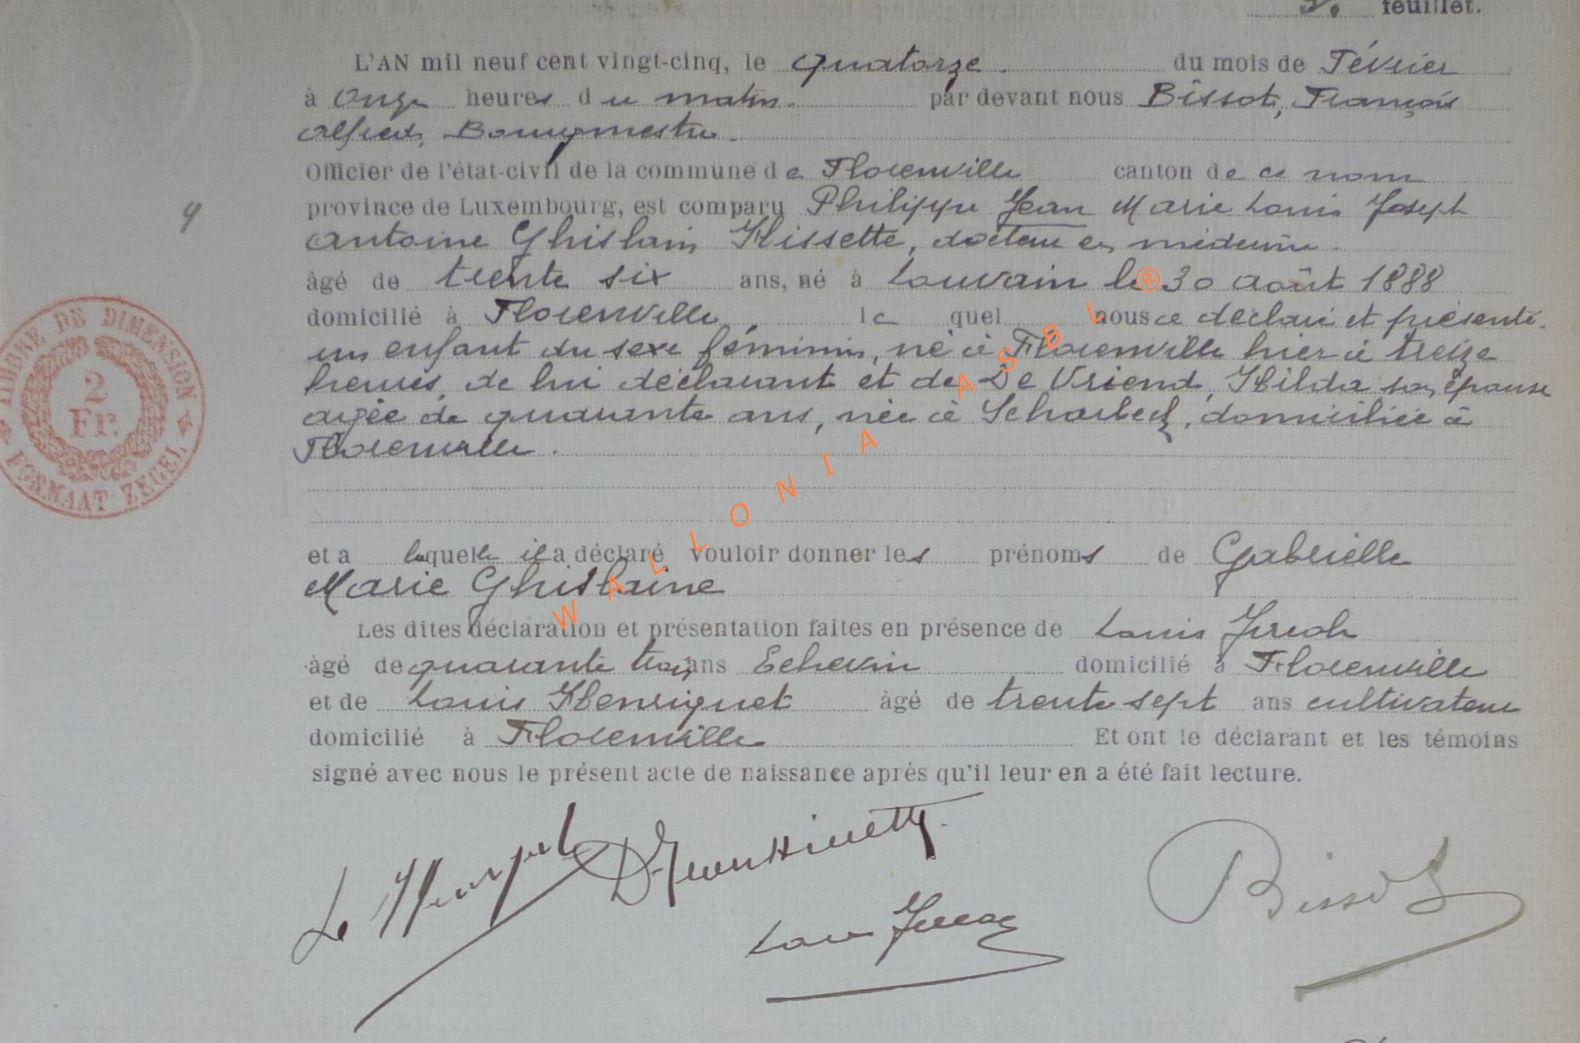 3. feuillet.
L'AN mil neuf cent vingt-cinq, le quatorze du mois de Février
à onze heures du matin. par devant nous Bissot, François
Alfred, Bourgmestre.
Officier de l'état-civil de la commune de Florenville canton de ce nom
province de Luxembourg, est comparu Philippe Jean Marie Louis Joseph
Antoine Ghislain Hissette, docteur en médecine.
âgé de trente six ans, né à Louvain le 30 août 1888
domicilié à Florenville, le quel nous a déclaré et présenté
un enfant du sexe féminin, né à Florenville hier à treize
heures, de lui déclarant et de De Vriend, Hilda son épouse
agée de quarante ans, née à Scharbeek, domiciliée à
Florenville.
et a laquelle il a déclaré vouloir donner les prénoms de Gabrielle
Marie Ghislaine
Les dites déclaration et présentation faites en présence de Louis
âgé de quarante trois ans Echevin domicilié à Florenville
et de Louis Henriquet âgé de trente sept ans cultivateur
domicilié à Florenville Et ont le déclarant et les témoins
signé avec nous le présent acte de naissance après qu'il leur en a été fait lecture.
Bissot
Louis
4
TIMBRE DE DIMENSION
2
Fr.
FORMAAT ZEGEL
WALLONIA ASBL ®